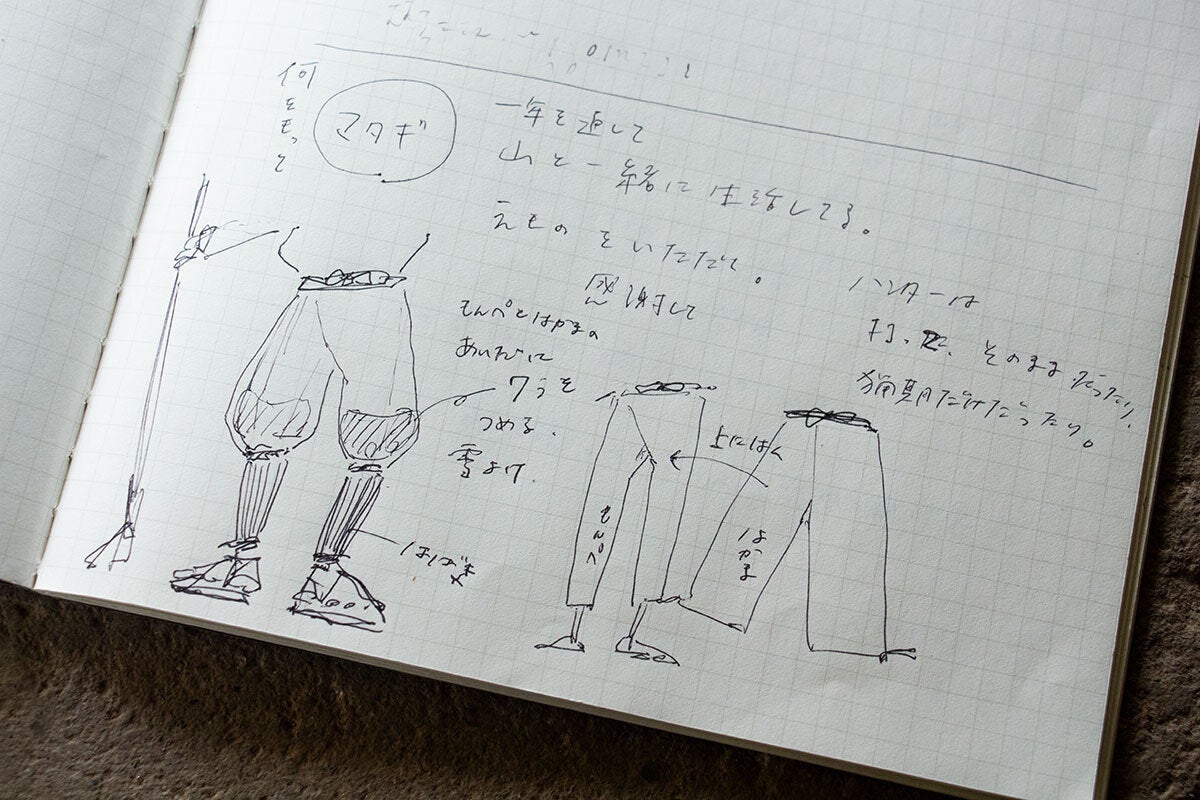 何をもって
マタギ
一年を通して
山と一緒に生活してる。
えもの をいただいて。
感謝して
ハンターは
そのままだったり、
猟期だけだったり。
もんぺとはかまの
あいだに
ワラを
つめる。
雪よけ
上にはく
もんぺ
はかま
はばき